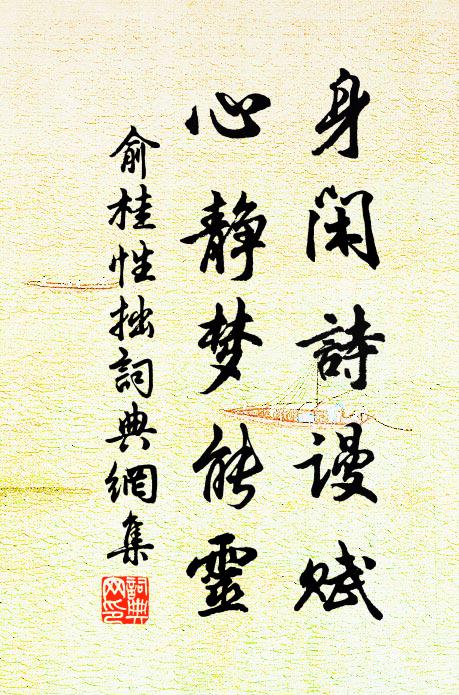 身闲詩谩赋
心静梦能靈
俞桂性拙詞典網集
詞典
网印